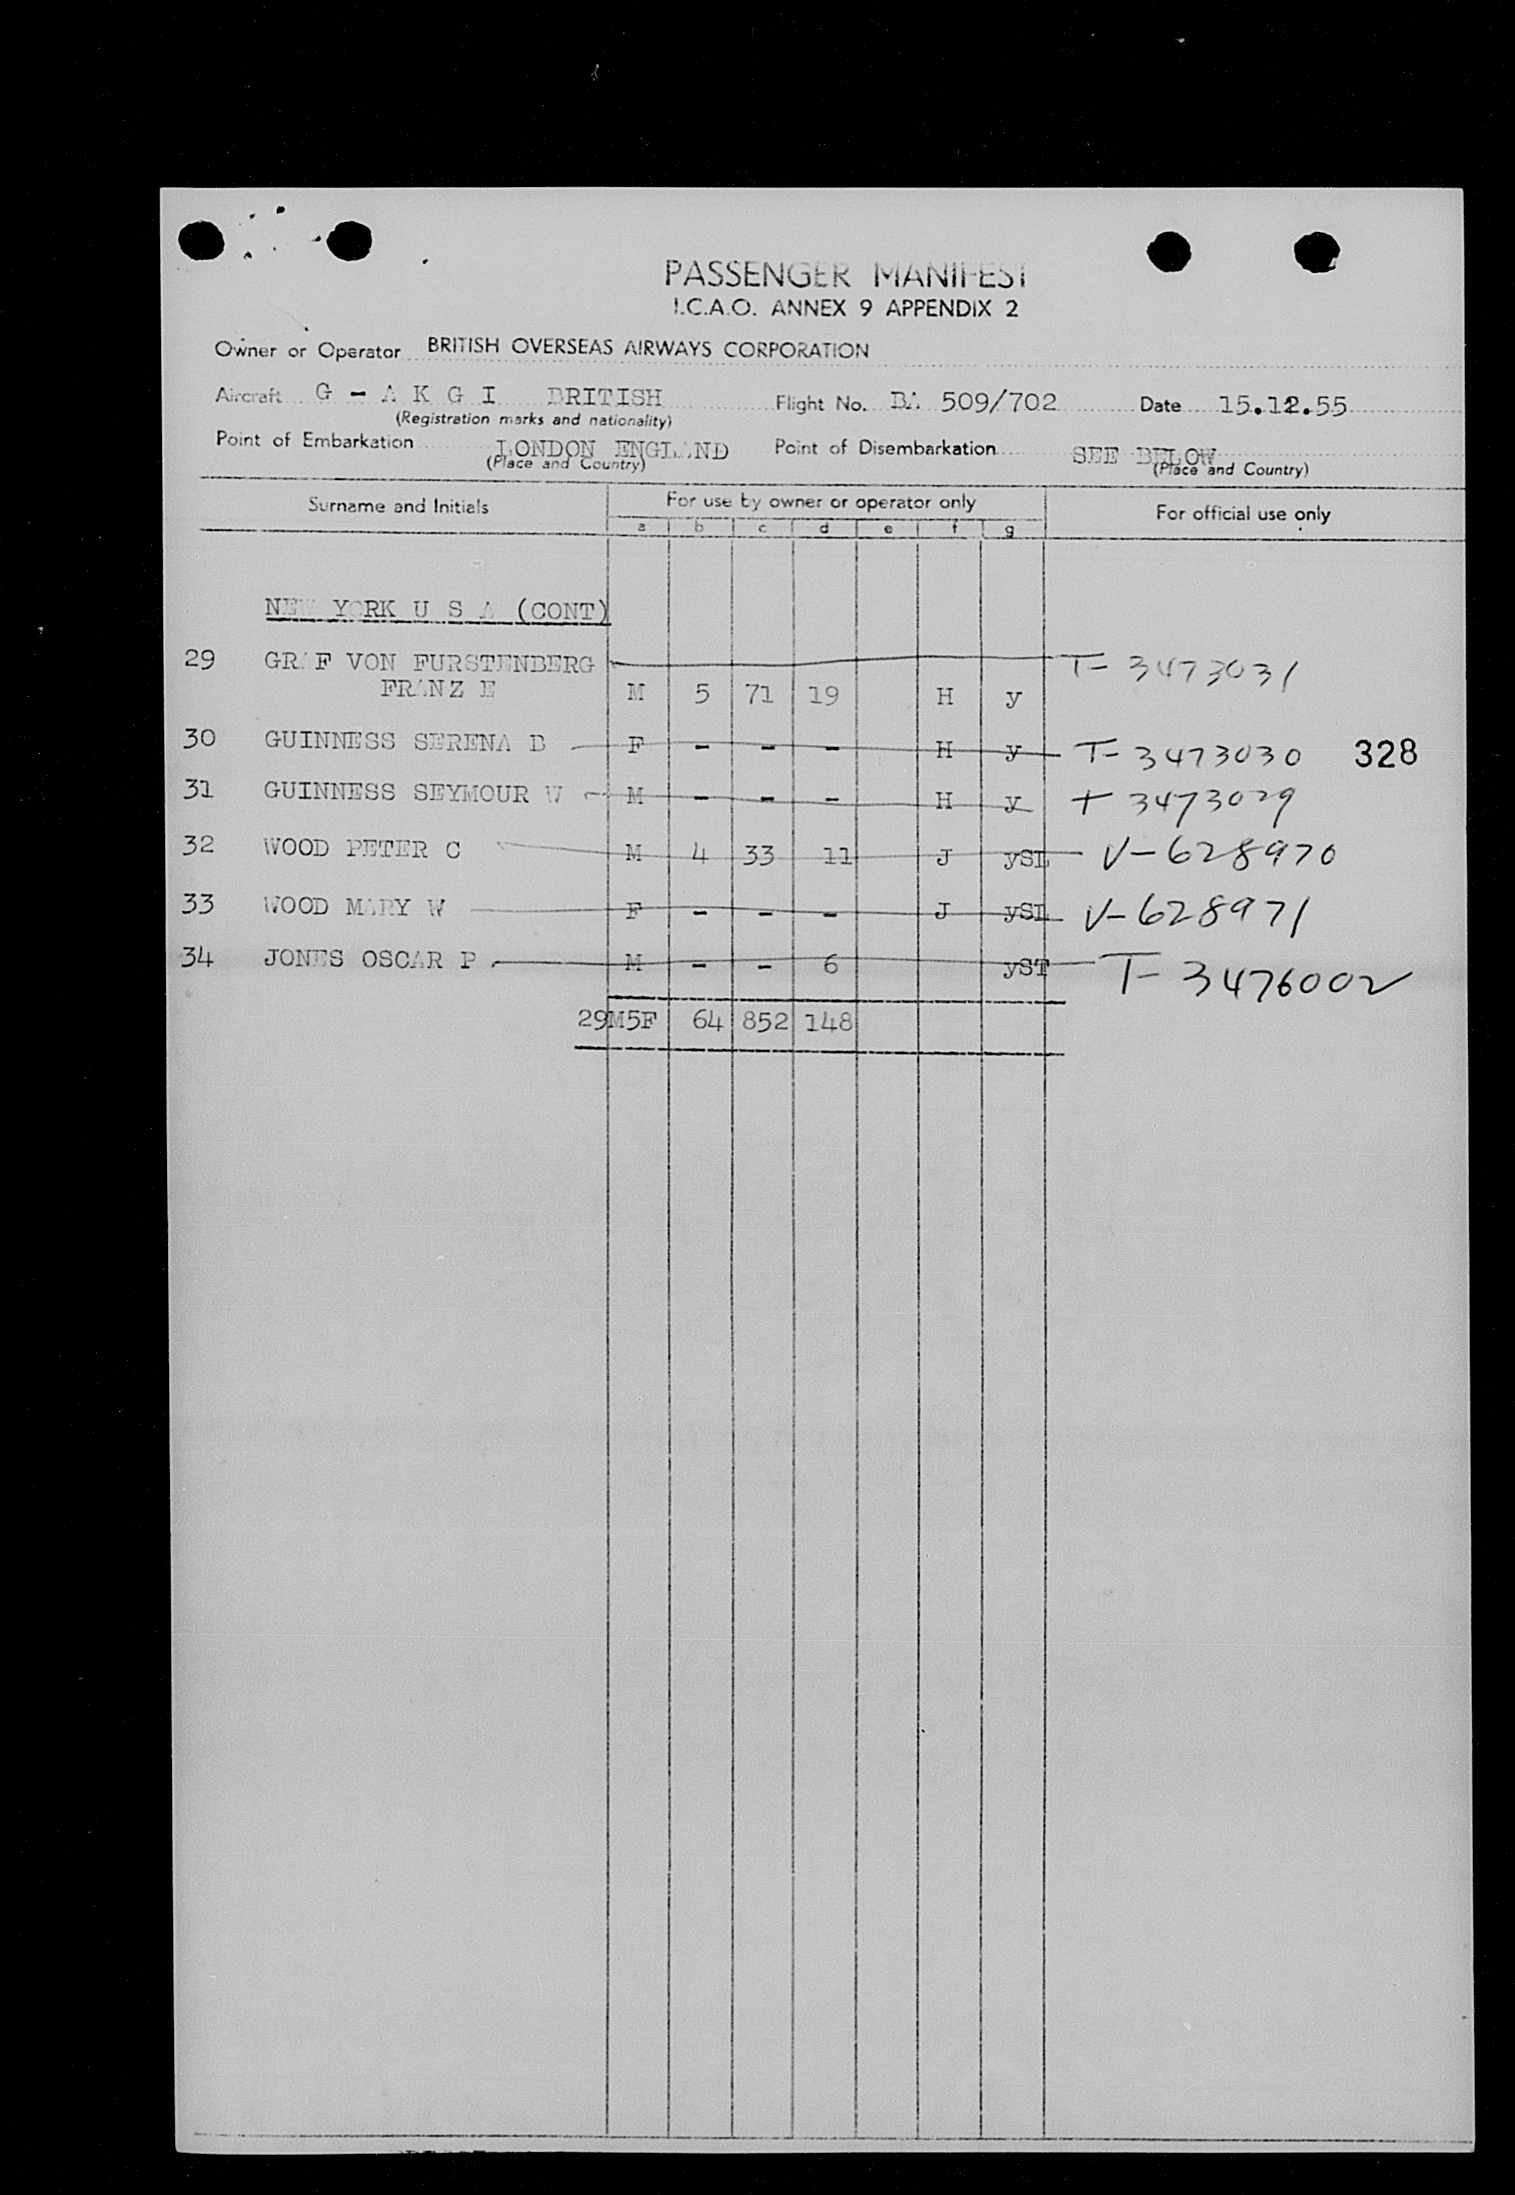 PASSENGER MANIFEST
I.C.A.O. ANNEX 9 APPENDIX 2
Owner or Operator BRITISH OVERSEAS AIRWAYS CORPORATION
Aircraft G - A K G I BRITISH Flight No. BA 509/702 Date 15.12.55
(Registration marks and nationality)
Point of Embarkation LONDON ENGLAND Point of Disembarkation SEE BELOW
(Place and Country) (Place and Country)
Surname and Initials For use by owner or operator only For official use only
a b c d e f g
NEW YORK U S A (CONT)
29 GRAF VON FURSTENBERG T-3473031
FRANZ E M 5 71 19 H y
30 GUINNESS SERENA B F - - - H y T-3473030 328
31 GUINNESS SEYMOUR W M - - - H y T 3473029
32 WOOD PETER C M 4 33 11 J ySL V-628970
33 WOOD MARY W F - - - J ySL V-628971
34 JONES OSCAR P M - - 6 yST T-3476002
29M5F 64 852 148